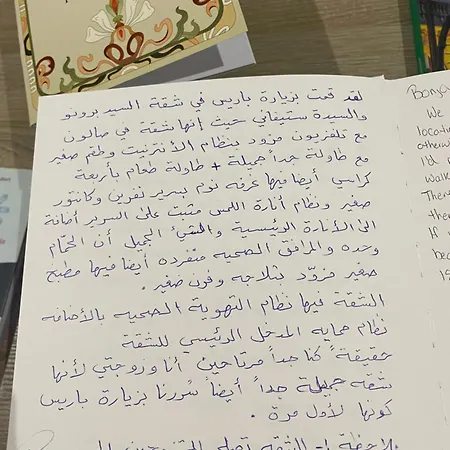 لقد قمت بزيارة باريس في شقة السيد برونو
والسيدة ستيفاني حيث إنها شقة في صالون
مع تلفزيون مزود بنظام الأنترنيت وطقم صغير
مع طاولة جداً جميلة + طاولة طعام بأربعة
كراسي أيضاً فيها غرفه نوم بسرير نفرين وكانتور
صغير ونظام أنارة اللمس مثبت على السرير أضافة
الى الأنارة الرئيسية والشيء الجميل أن الحمّام
وحده والمرافق الصحيه منفرده أيضاً فيها مطبخ
صغير مزوّد بثلاجه وفرن صغير.
الشقة فيها نظام التهوية الصحيه بالأضافه
نظام حمايه المدخل الرئيسي للشقة
حقيقةً كنا جداً مرتاحين أنا وزوجتي لأنها
شقه جميلة جداً أيضاً سُررنا بزيارة باريس
كونها لأول مرة.
ملاحظة :- الشقه تصلح
Bonjo
We
locatio
otherwi
I'd
walk
There
the
If
bec
is